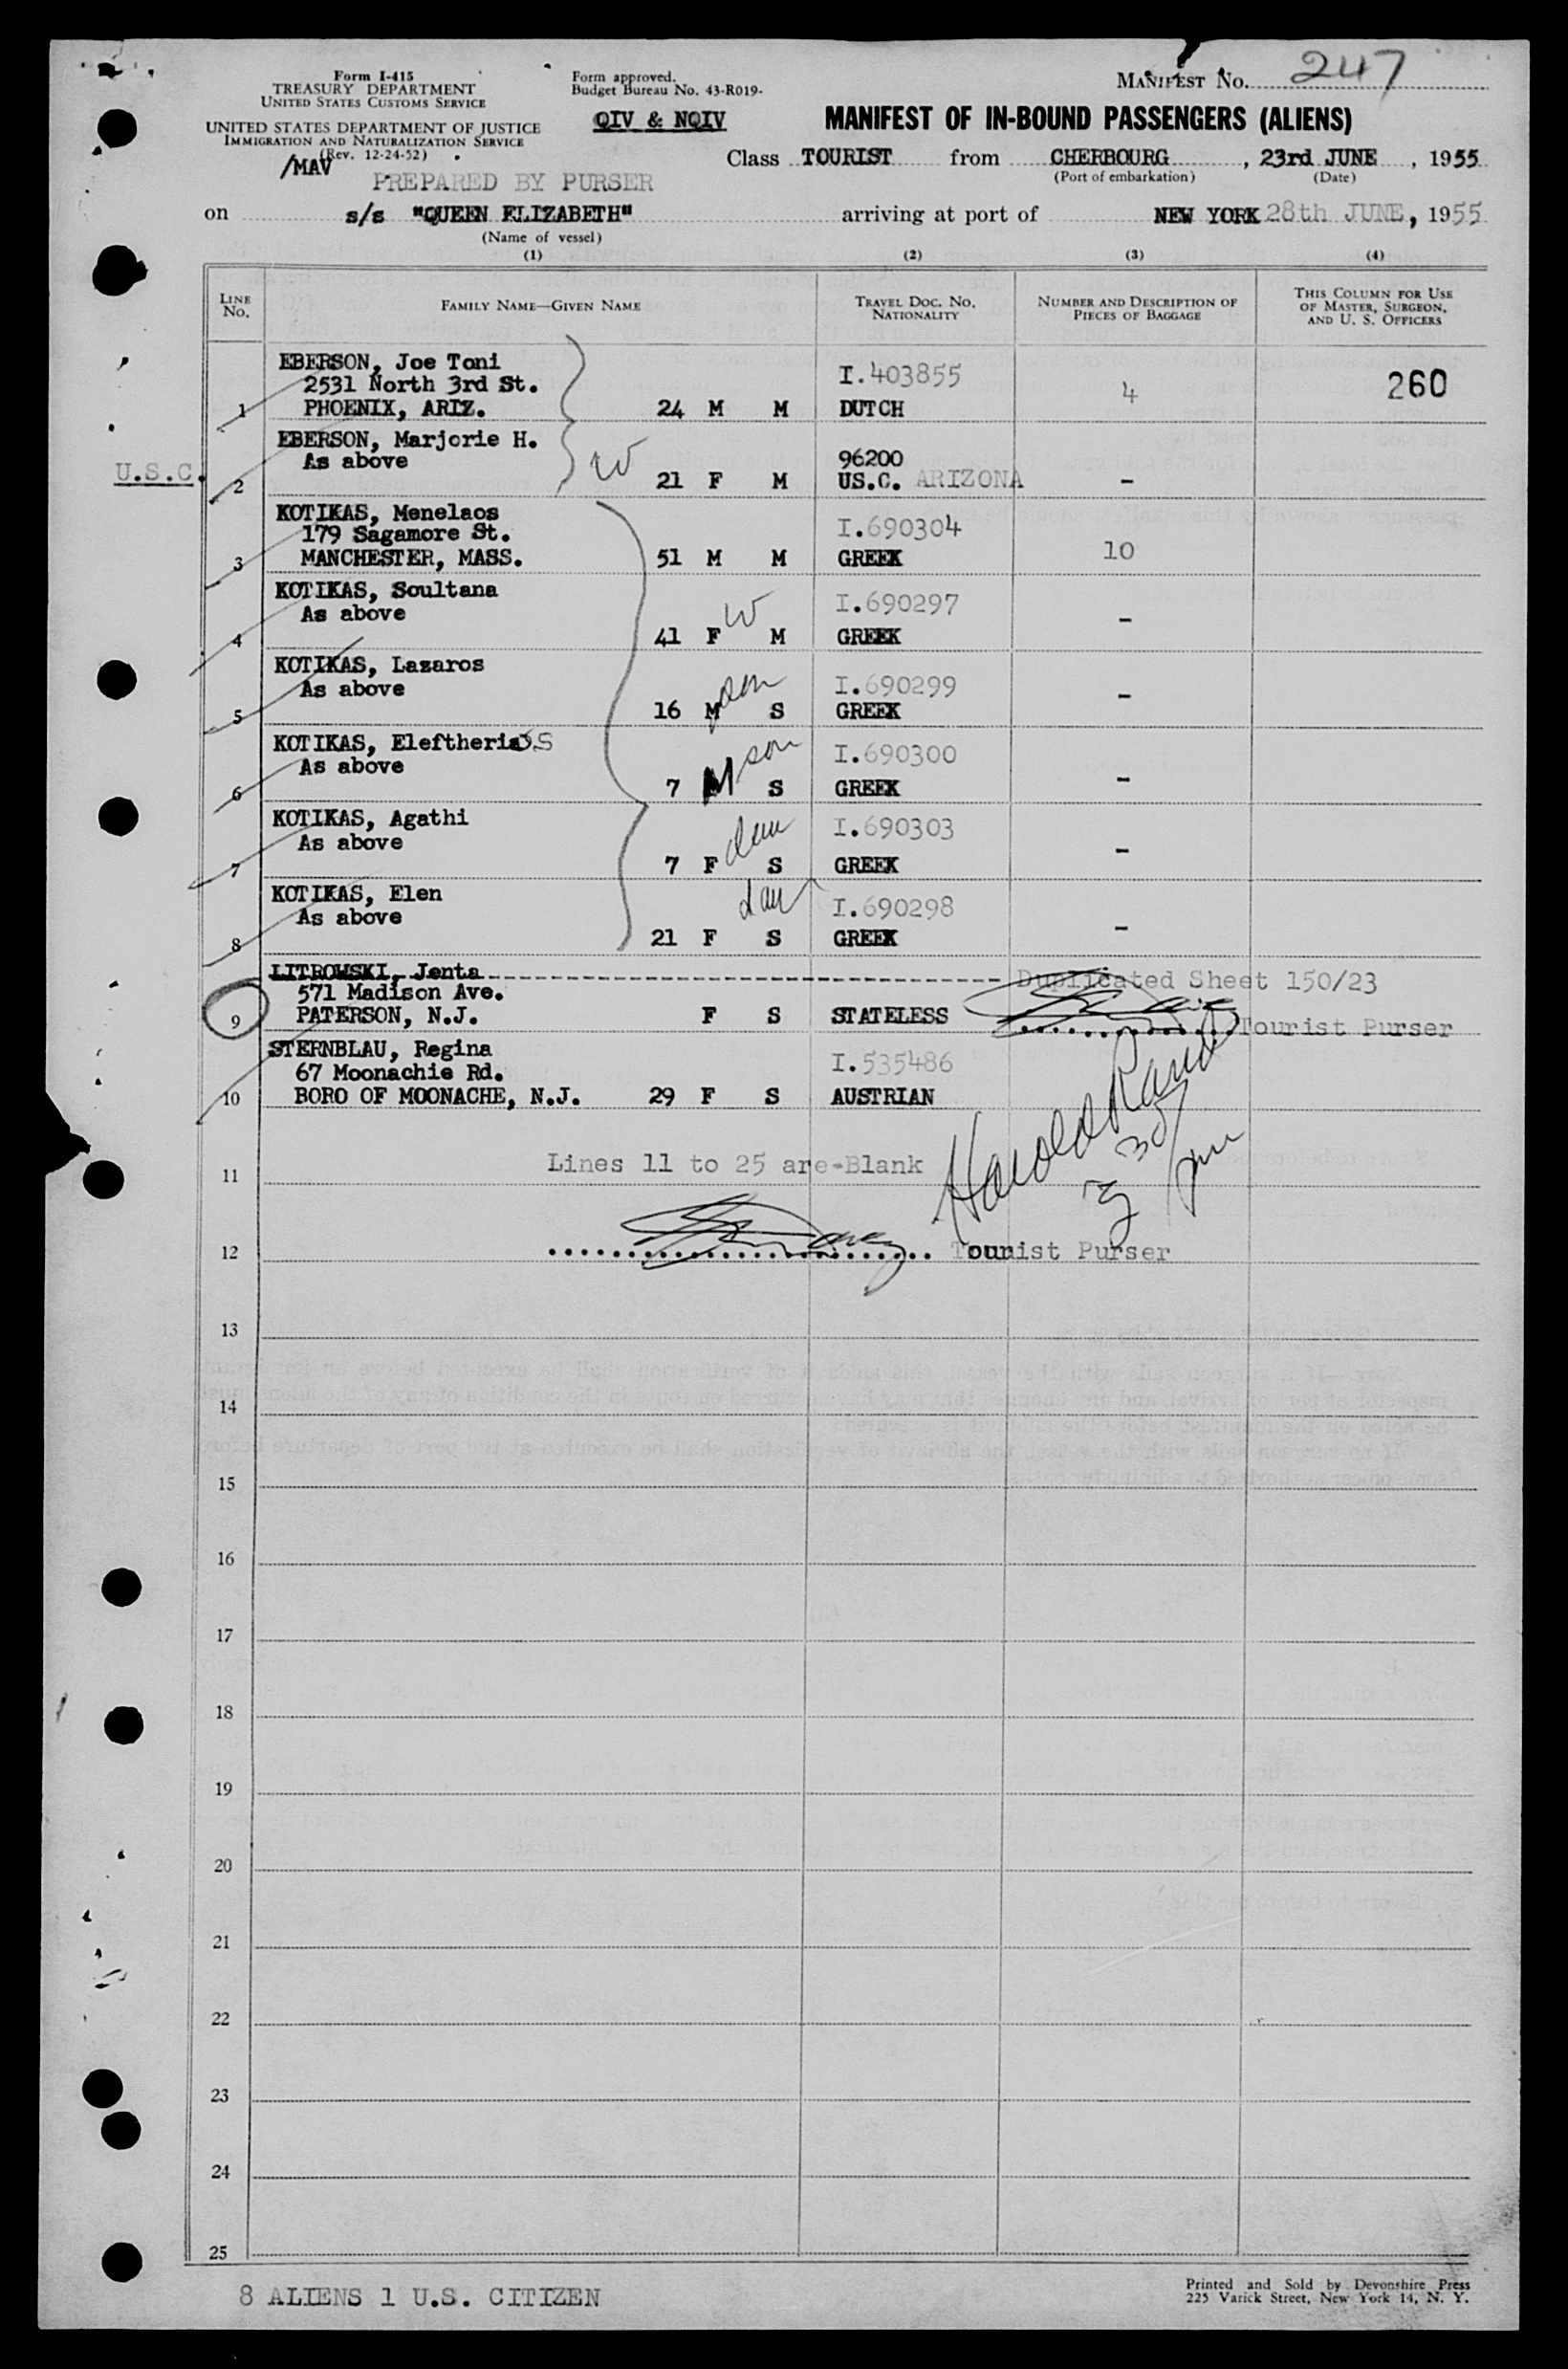 Form I-415
TREASURY DEPARTMENT
UNITED STATES CUSTOMS SERVICE
UNITED STATES DEPARTMENT OF JUSTICE
IMMIGRATION AND NATURALIZATION SERVICE
(Rev. 12-24-52)
/MAV
PREPARED BY PURSER
Form approved.
Budget Bureau No. 43-R019-
QIV & NQIV
MANIFEST No. 247
MANIFEST OF IN-BOUND PASSENGERS (ALIENS)
Class TOURIST from CHERBOURG, 23rd JUNE, 1955
(Port of embarkation) (Date)
on s/s "QUEEN ELIZABETH" arriving at port of NEW YORK 28th JUNE, 1955
(Name of vessel)
(1) (2) (3) (4)
LINE No. FAMILY NAME—GIVEN NAME TRAVEL DOC. NO. NATIONALITY NUMBER AND DESCRIPTION OF PIECES OF BAGGAGE THIS COLUMN FOR USE OF MASTER, SURGEON, AND U. S. OFFICERS
EBERSON, Joe Toni I.403855
2531 North 3rd St. 4 260
1 PHOENIX, ARIZ. 24 M M DUTCH
EBERSON, Marjorie H.
As above W 96200
U.S.C. 2 21 F M US.C. ARIZONA -
KOTIKAS, Menelaos I.690304
179 Sagamore St. 10
3 MANCHESTER, MASS. 51 M M GREEK
KOTIKAS, Soultana I.690297
As above W -
4 41 F M GREEK
KOTIKAS, Lazaros I.690299
As above son -
5 16 M S GREEK
KOTIKAS, Eleftherios I.690300
As above son -
6 7 M S GREEK
KOTIKAS, Agathi I.690303
As above dau -
7 7 F S GREEK
KOTIKAS, Elen dau I.690298
As above -
8 21 F S GREEK
LITROWSKI, Jenta Duplicated Sheet 150/23
571 Madison Ave.
9 PATERSON, N.J. F S STATELESS Tourist Purser
STERNBLAU, Regina I.535486
67 Moonachie Rd.
10 BORO OF MOONACHE, N.J. 29 F S AUSTRIAN
Harold
11 Lines 11 to 25 are-Blank
12 Tourist Purser
13
14
15
16
17
18
19
20
21
22
23
24
25
8 ALIENS 1 U.S. CITIZEN
Printed and Sold by Devonshire Press
225 Varick Street, New York 14, N. Y.